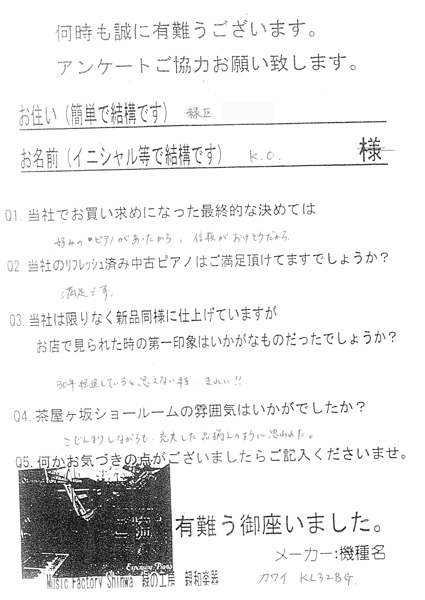 何時も誠に有難うございます。
アンケートご協力お願い致します。
お住い（簡単で結構です） 緑区
お名前（イニシャル等で結構です） K.O. 様
Q1. 当社でお買い求めになった最終的な決めては
好みのピアノがあったから。信頼がおけそうだから
Q2. 当社のﾘﾌﾚｯｼｭ済み中古ピアノはご満足頂けてますでしょうか？
満足です。
Q3. 当社は限りなく新品同様に仕上げていますが
お店で見られた時の第一印象はいかがなものだったでしょうか？
30年経過していると思えない程、きれい!!
Q4. 茶屋ヶ坂ショールームの雰囲気はいかがでしたか？
こじんまりしながらも、充実した品揃えのように思われた。
Q5. 何かお気づきの点がございましたらご記入くださいませ。
有難う御座いました。
Expensive Piano
メーカー:機種名
Music Factory Shinwa 緑の工房 親和楽器
カワイ KL32BG